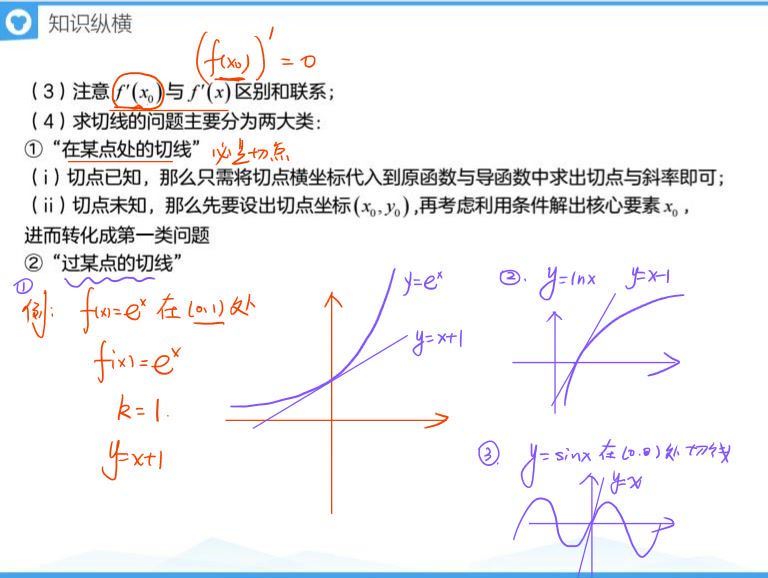 知识纵横
(f(x₀))' = 0
（3）注意 f'(x₀) 与 f'(x) 区别和联系；
（4）求切线的问题主要分为两大类：
① “在某点处的切线” 必是切点
（i）切点已知，那么只需将切点横坐标代入到原函数与导函数中求出切点与斜率即可；
（ii）切点未知，那么先要设出切点坐标(x₀,y₀),再考虑利用条件解出核心要素 x₀，
进而转化成第一类问题
② “过某点的切线”
① 例: f(x)=eˣ 在 (0,1) 处
f'(x)=eˣ
k=1.
y=x+1
y=eˣ
y=x+1
②. y=lnx y=x-1
③. y=sinx 在(0.0)处切线
y=x